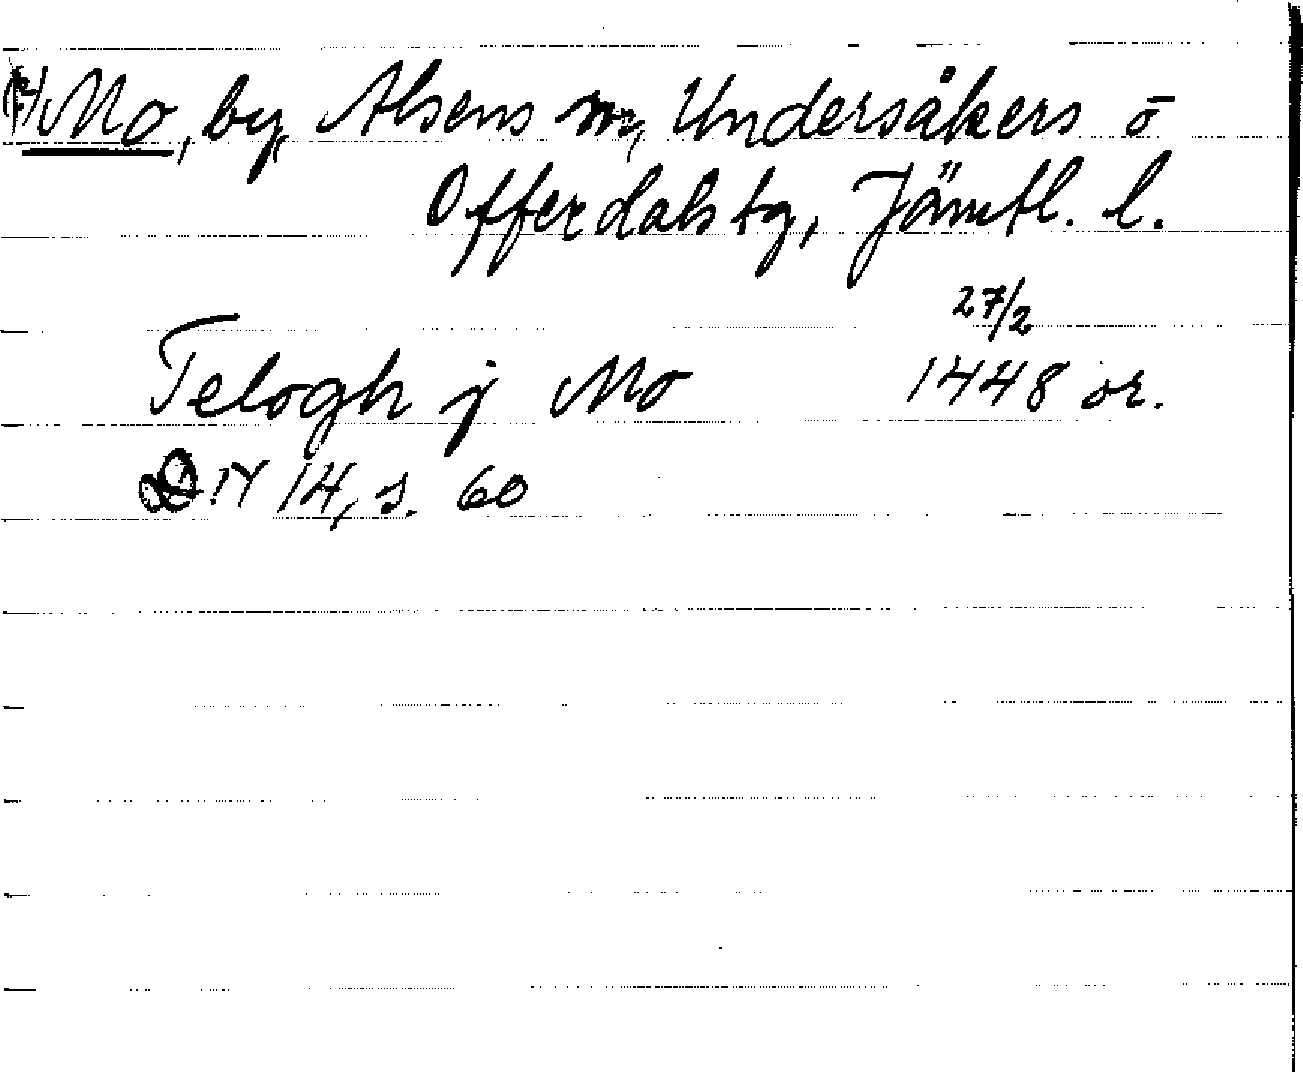 Mo, by, Alsens sn, Undersåkers o
Offerdals tg, Jämtl. l.
27/2
Telogh j Mo 1448 or.
DN 14, s. 60